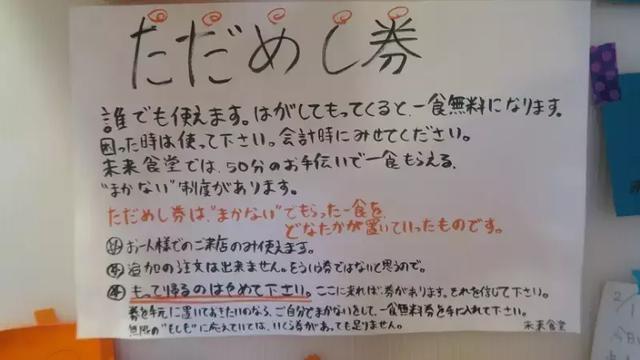 ただめし券
誰でも使えます。はがしてもってくると、一食無料になります。
困った時は使って下さい。会計時にみせてください。
未来食堂では、50分のお手伝いで一食もらえる、
"まかない"制度があります。
ただめし券は、"まかない"でもらった一食を、
どなたかが置いていったものです。
お一人様でのご来店のみ使えます。
追加の注文は出来ません。そういう券ではないと思うので。
もって帰るのはやめて下さい。ここに来れば券があります。それを信じて下さい。
券を手元に置いておきたいのなら、ご自分でまかないをして、一食無料券を手に入れて下さい。
無限の"もしも"に応えていては、いくら券があっても足りません。
未来食堂
2/1